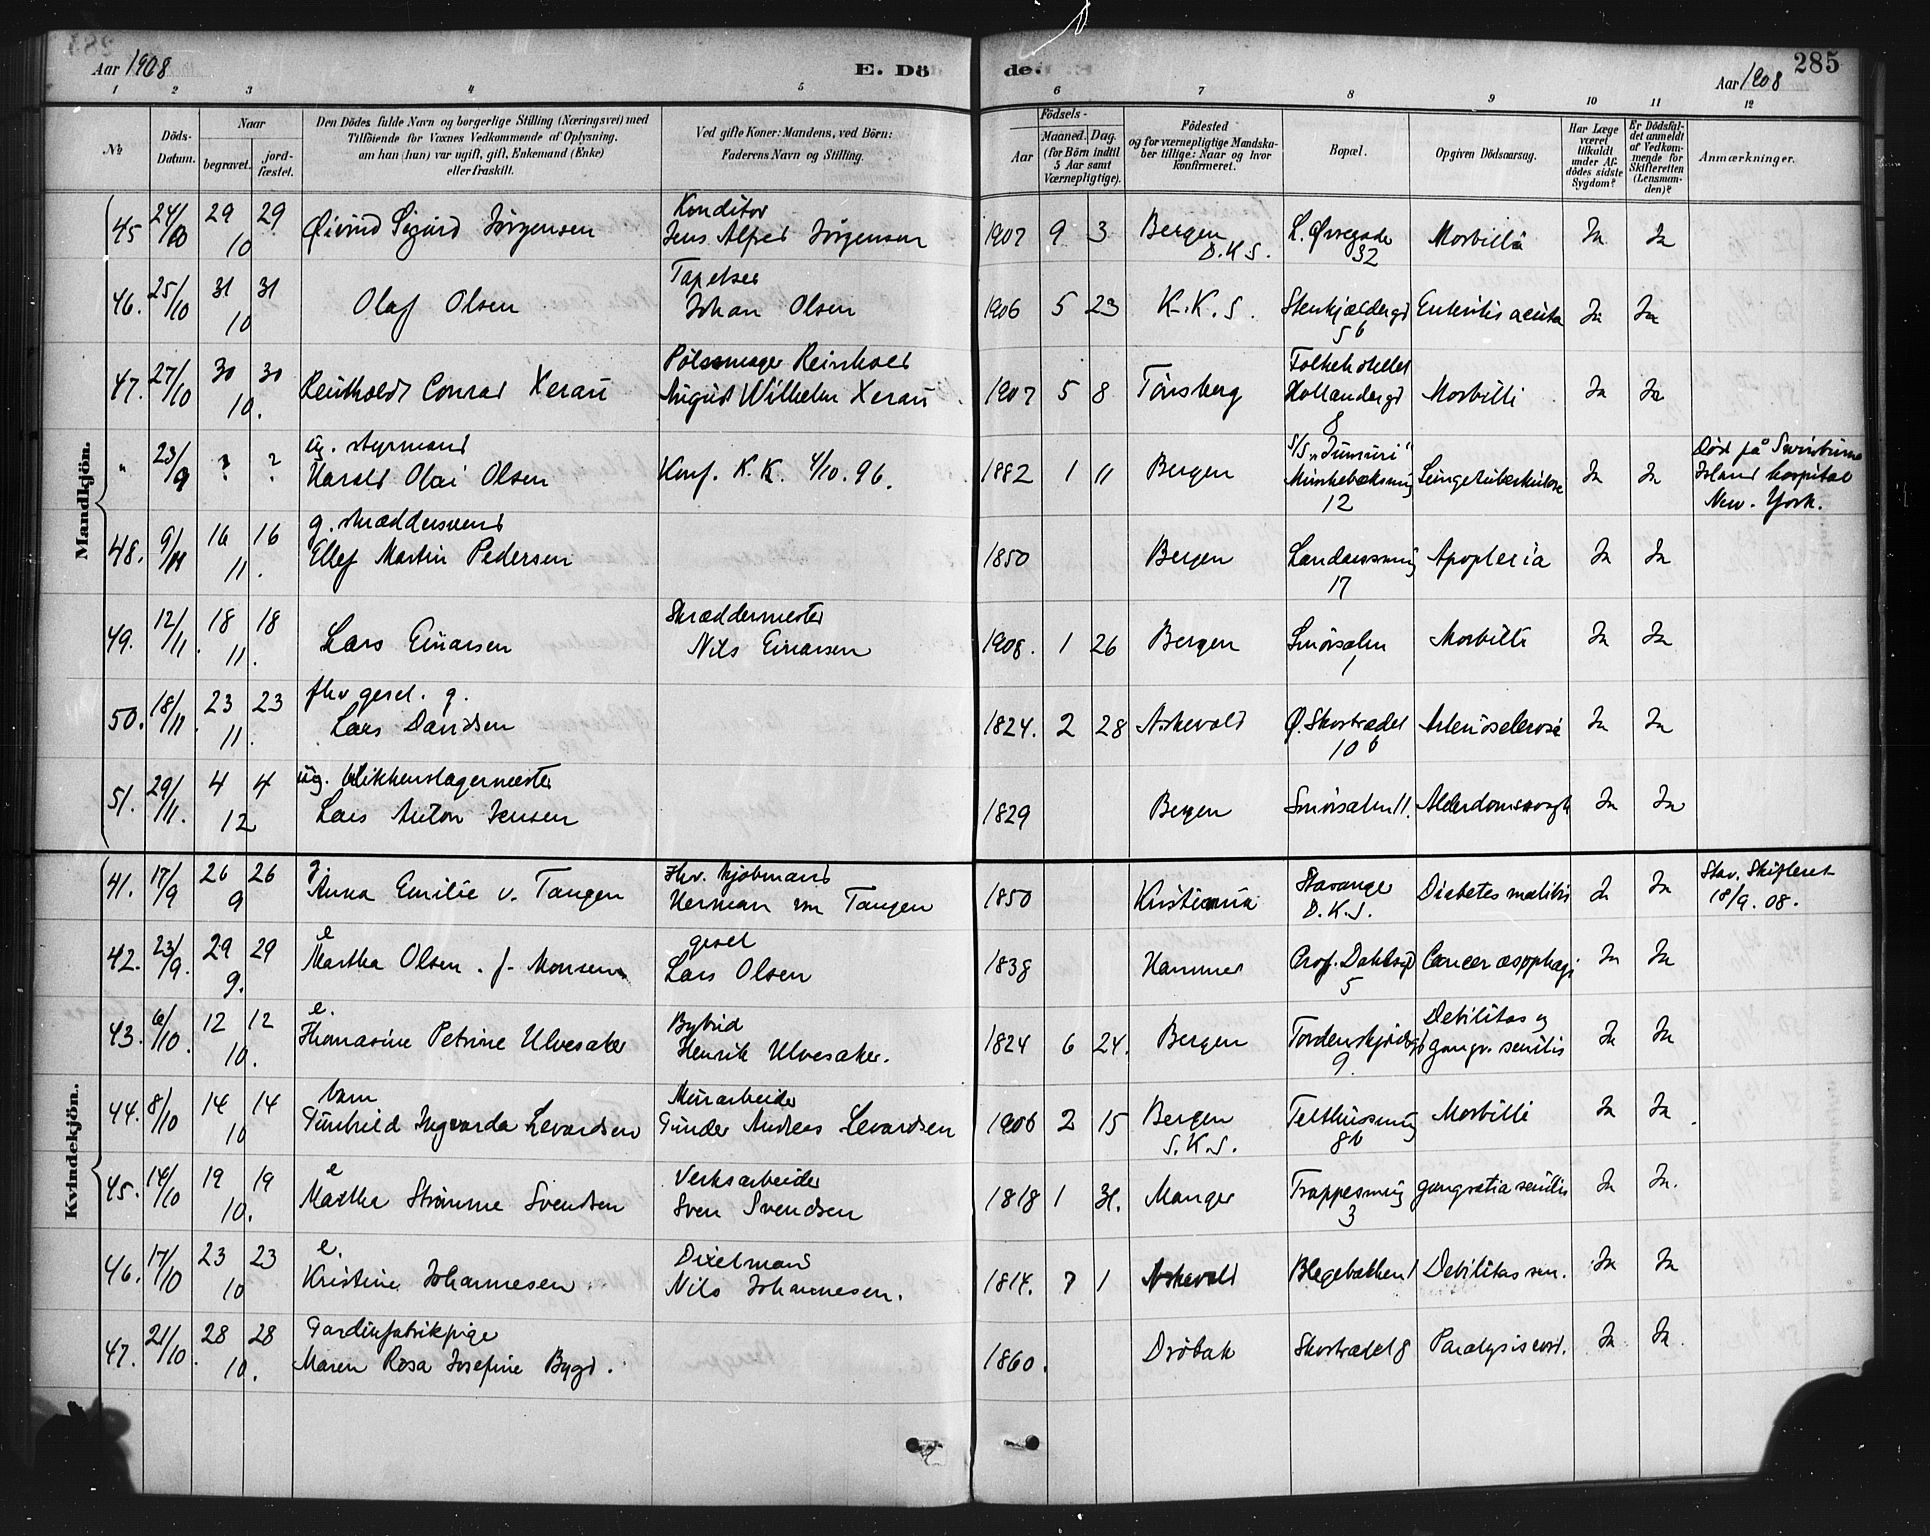 Aar 1908
E. Dö
de.
Aar 1908
285
1 2 3 4 5 6 7 8 9 10 11 12
№
Döds-Datum.
Naar
begravet. jord-fæstet.
Den Dödes fulde Navn og borgerlige Stilling (Næringsvei) med
Tilföiende for Voxnes Vedkommende af Oplysning.
om han (hun) var ugift, gift, Enkemand (Enke)
eller fraskilt.
Ved gifte Koner: Mandens, ved Börn:
Faderens Navn og Stilling.
Födsels-
Aar Maaned. Dag.
(for Börn indtil
5 Aar samt
Værnepligtige).
Födested
og for værnepligtige Mandska-
ber tillige: Naar og hvor
konfirmeret.
Bopæl.
Opgiven Dödsaarsag.
Har Læge
været
tilkaldt
under Af-
dödes sidste
Sygdom?
Er Dödsfal-
det anmeldt
af Vedkom-
mende for
Skifteretten
(Lensman-
den)?
Anmærkninger.
Mandkjön.
45 24/10 29 10 29 Øivind Sigurd Jørgensen Konditor Jens Alfred Jørgensen 1907 9 3 Bergen D.K.S. L. Øvregade 32 Morbilli Ja Ja
46. 25/10 31 10 31 Olaf Olsen Tapetser Johan Olsen 1906 5 23 K.K.S. Stenkjeldergd 5b Enteritis acuta Ja Ja
47. 27/10 30 10. 30 Reinholdt Conrad Xerau Pølsemager Reinhold August Wilhelm Xerau 1907 5 8 Tønsberg Folkehotellet Hollendergd 8 Morbilli Ja Ja
" 23/9 ? ? ug. styrmand Harald Olai Olsen Konf. K.K. 4/10.96. 1882 1 11 Bergen S/S "Jumuri" 12 Lungetuberkulose Ja Ja Død på Island hospital New. York.
48. 9/11 16 11. 16 g. skræddersvend Ellef Martin Pedersen 1850 Bergen 17 Apoplexia Ja Ja
49. 12/11. 18 11. 18 Lars Einarsen Skræddermester Nils Einarsen 1908. 1 26 Bergen Smørsalm 1 Morbilli Ja Ja
50. 18/11. 23 11. 23 fhv gesel. g. Lars Davidsen 1824. 2 28 Askevold Ø. Skostrædet 10b Arteriosclerose Ja Ja
51. 29/11. 4 12 4 ug. blikkenslagermester Lars Anton Jensen 1829 Bergen Smørsalm 11. Ja Ja
Kvindekjön.
41. 17/9 26 9 26 g Anna Emilie v. Tangen Fhv. kjøbmand Herman von Tangen 1850 Kristiania Stavanger D.K.S. Diabetes Ja Ja Stav. Skifteret 18/9.08.
42. 23/9. 29 9. 29 e Martha Olsen . f. Monsen gesel Lars Olsen 1838 Hammer Prof. Dahlsgd 5 Cancer Ja Ja
43. 6/10. 12 10. 12 e. Thomasine Petrine Ulvesaker Bybud Henrik Ulvesaker. 1824 6 24. Bergen Tordenskjoldsgd 9. Debilitas og gangr. senilis Ja Ja
44. 8/10 14 10 14 barn Gunhild Ingvarda Levardsen Murarbeider Gunder Andreas Levardsen 1906 2 15 Bergen S.K.S. Telthussmug 8b Morbilli Ja Ja
45. 14/10 19 10. 19 e Martha Strømme Svendsen Verksarbeider Sven Svendsen 1818 1 31. Manger Trappesmug 3 senilis Ja Ja.
46. 17/10 23 10 23 e. Kristine Johannesen Dixelmand Nils Johannesen. 1814. 7 1 Askevold Blegebakken 1 Debilitas sen. Ja Ja
47. 21/10. 28 10. 28 Gardinfabrikpige Maren Rosa Josefine Bygd. 1860. Drøbak Skostrædet 8 Paralysis cord. Ja Ja.